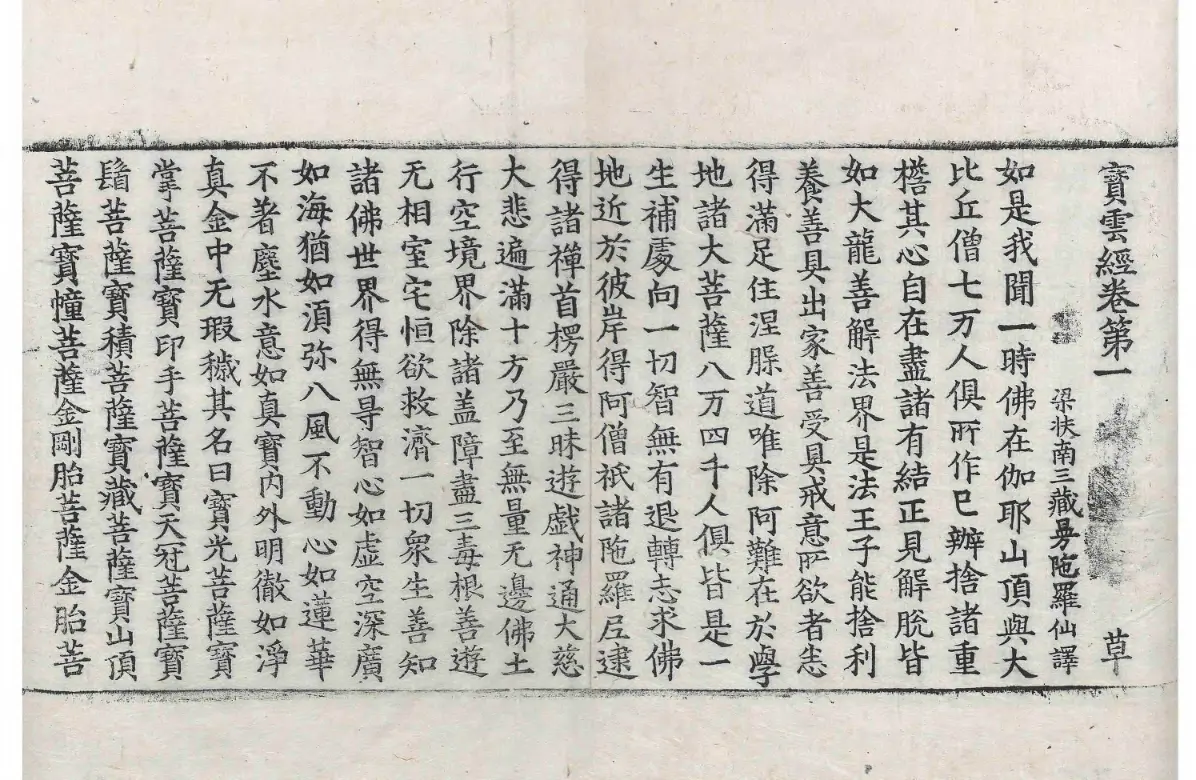 寶雲經卷第一 草
梁扶南三藏曼陁羅仙譯
如是我聞一時佛在伽耶山頂與大
比丘僧七万人俱所作已辦捨諸重
檐其心自在盡諸有結正見解脫皆
如大龍善解法界是法王子能捨利
養善具出家善受具戒意所欲者悉
得滿足住涅槃道唯除阿難在於學
地諸大菩薩八万四千人俱皆是一
生補處向一切智無有退轉志求佛
地近於彼岸得阿僧祇諸陁羅尼逮
得諸禪首楞嚴三昧遊戲神通大慈
大悲遍滿十方乃至無量无邊佛土
行空境界除諸盖障盡三毒根善遊
无相室宅恒欲救濟一切衆生善知
諸佛世界得無㝵智心如虛空深廣
如海猶如須弥八風不動心如蓮華
不著塵水意如真寶內外明徹如淨
真金中无瑕穢其名曰寶光菩薩寶
掌菩薩寶印手菩薩寶天冠菩薩寶
髻菩薩寶積菩薩寶藏菩薩寶山頂
菩薩寶幢菩薩金剛胎菩薩金胎菩